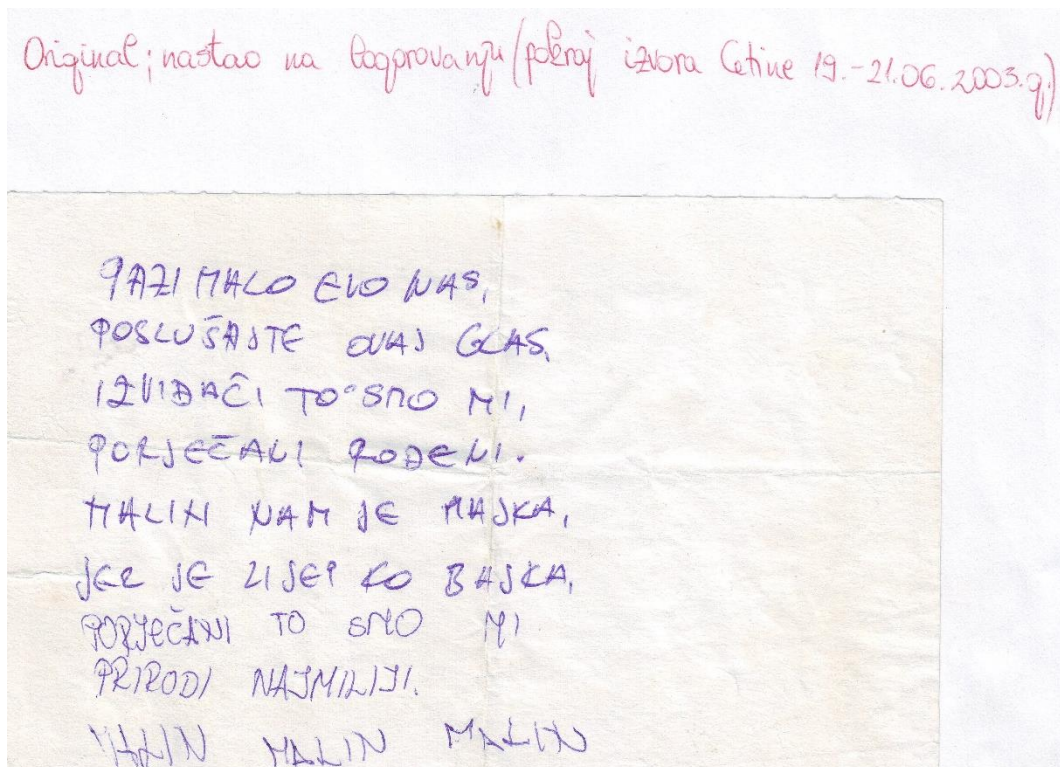 Original; nastao na logorovanju (pokraj izvora Cetine 19.-21.06.2003.g)
PAZI MALO EVO NAS,
POSLUŠAJTE OVAJ GLAS.
IZVIĐAČI TO SMO MI,
PORJEČANI ROĐENI.
MALIN NAM JE MAJKA,
JER JE LIJEP KO BAJKA,
PORJEČANI TO SMO MI
PRIRODI NAJMILIJI.
MALIN MALIN MALIN